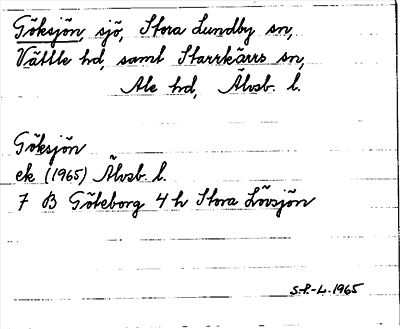 Göksjön, sjö, Stora Lundby sn,
Vättle hd, samt Starrkärrs sn,
Ale hd, Älvsb. l.
Göksjön
ek (1965) Älvsb. l.
7 B Göteborg 4 h Stora Lövsjön
S.P.-L. 1965